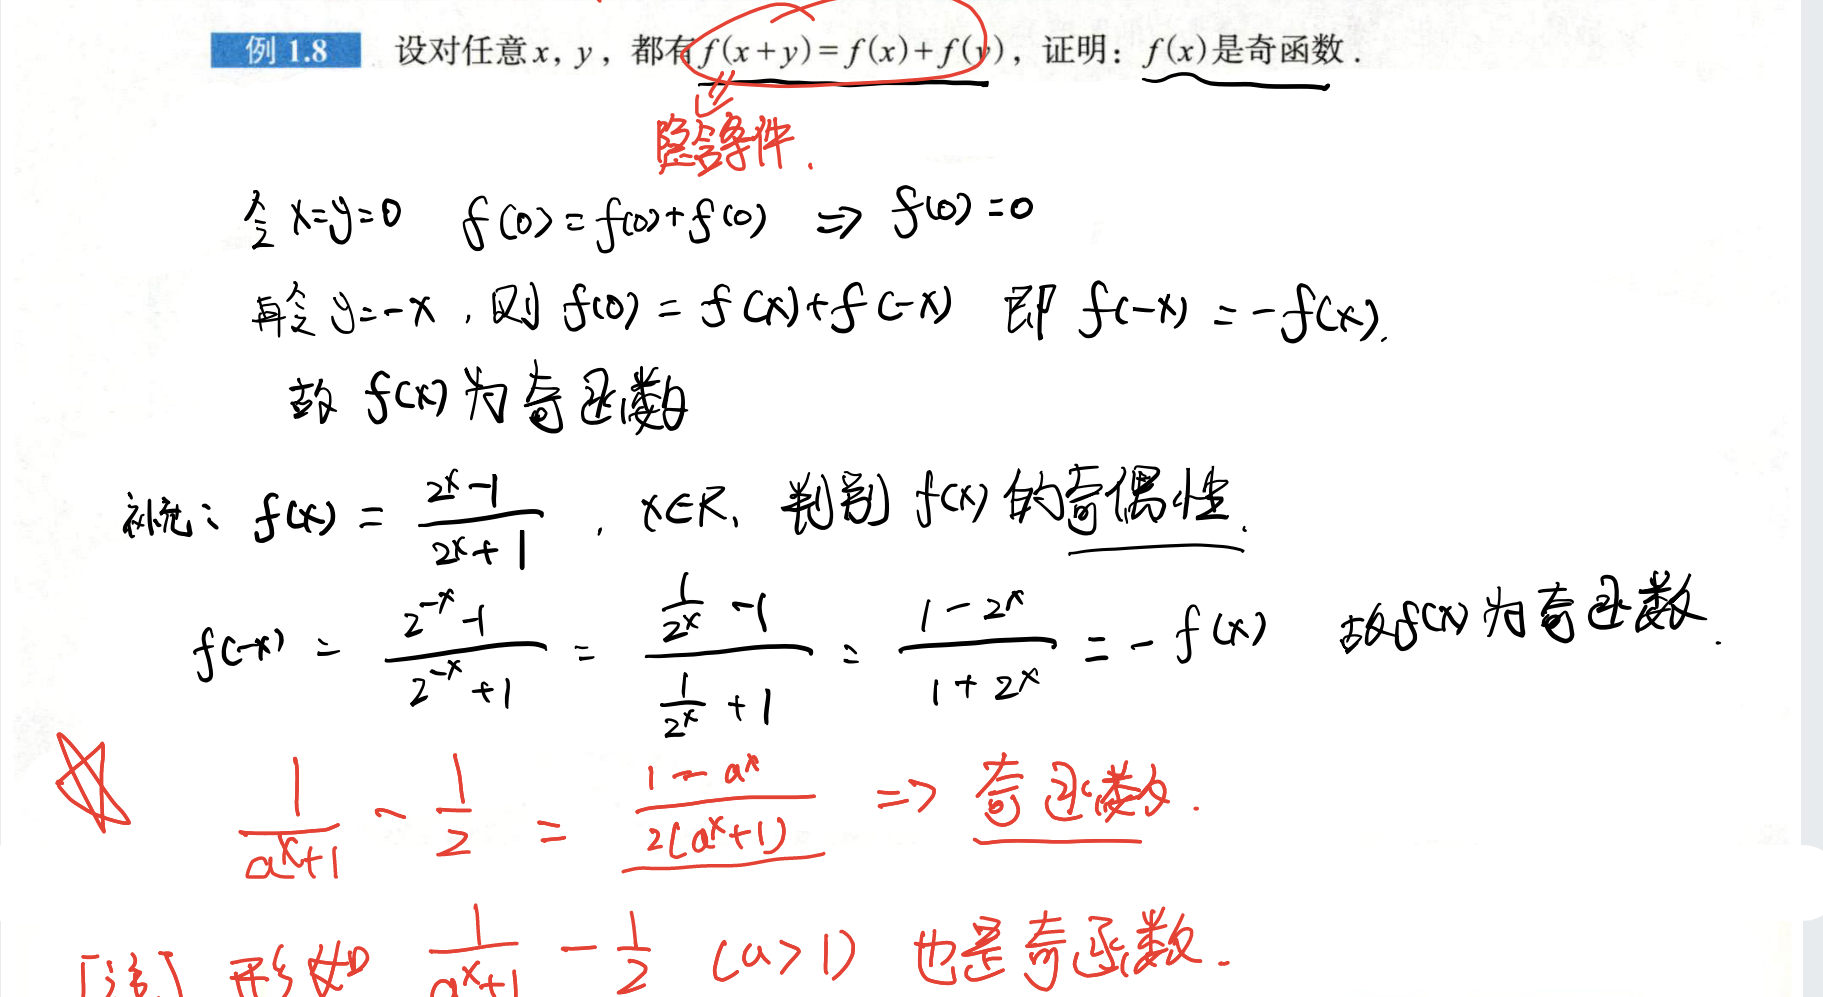 例 1.8 设对任意x, y, 都有f(x+y)=f(x)+f(y), 证明: f(x)是奇函数.
隐含条件.
令 x=y=0 f(0)=f(0)+f(0) ⇒ f(0)=0
再令 y=-x, 则 f(0) = f(x)+f(-x) 即 f(-x) = -f(x).
故 f(x) 为奇函数
补充: f(x) = (2^x-1)/(2^x+1), x∈R, 判别 f(x) 的奇偶性.
f(-x) = (2^-x -1)/(2^-x +1) = (1/2^x -1)/(1/2^x +1) = (1-2^x)/(1+2^x) = -f(x) 故f(x)为奇函数.
1/(a^x+1) - 1/2 = (1-a^x)/(2(a^x+1)) ⇒ 奇函数.
[注] 形如 1/(a^x+1) - 1/2 (a>1) 也是奇函数.